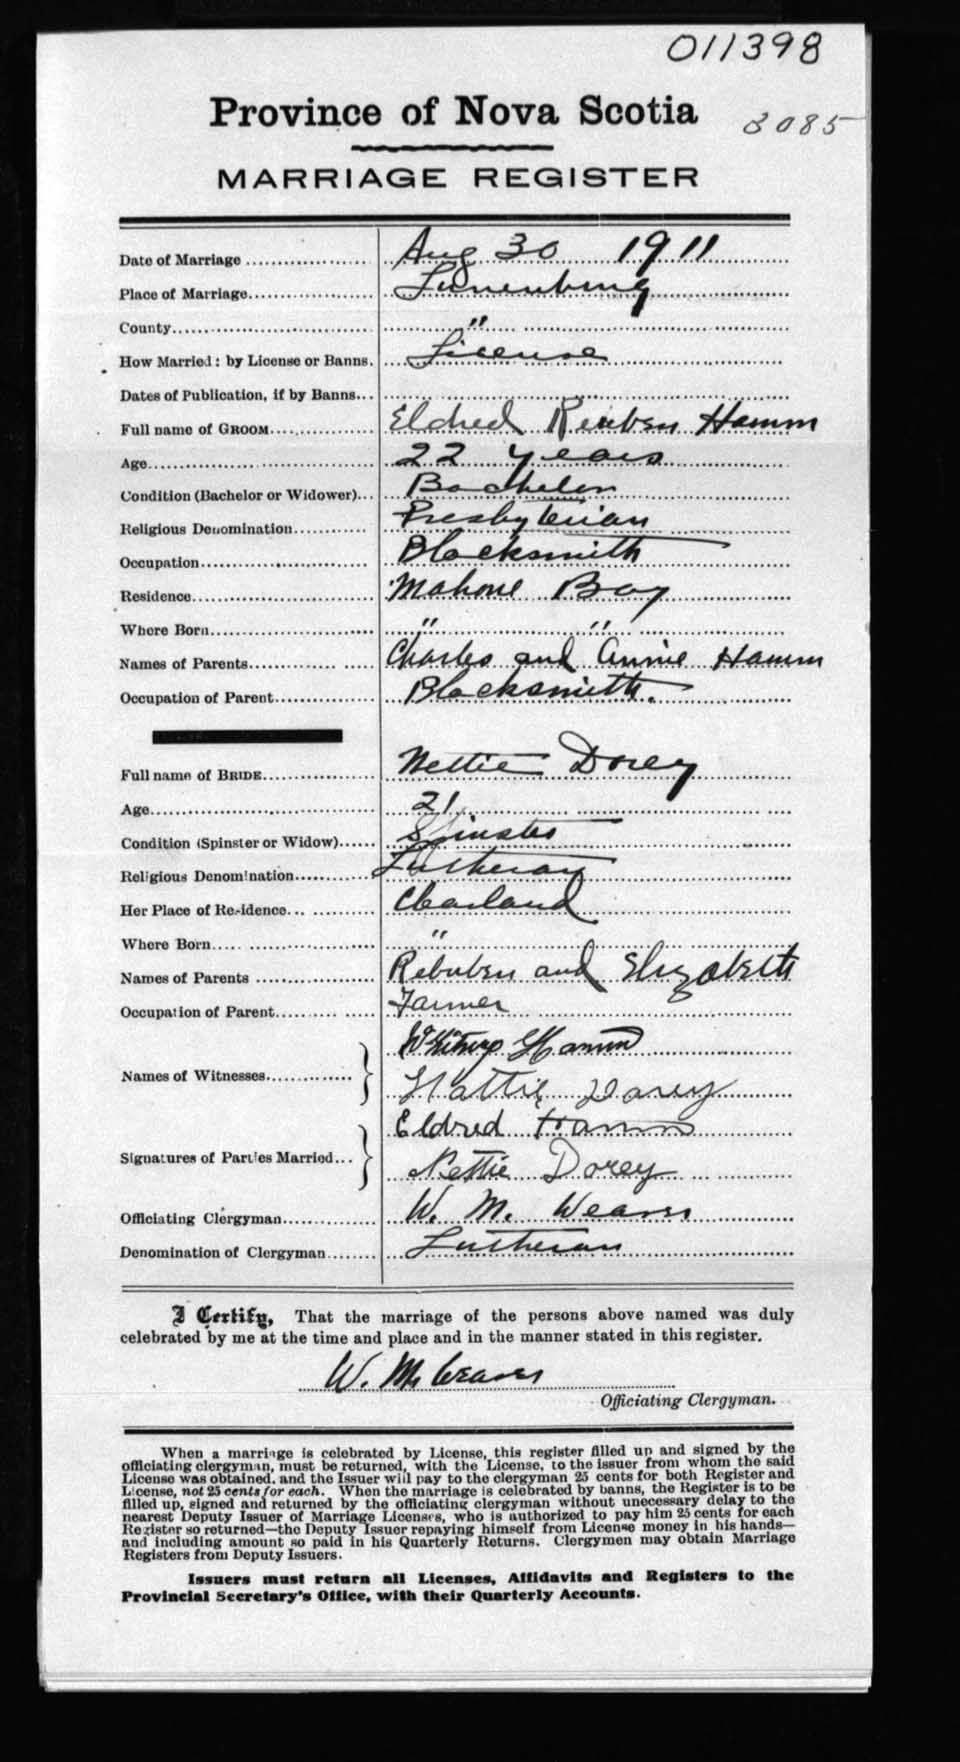 011398
Province of Nova Scotia
3085
MARRIAGE REGISTER
Date of Marriage Aug 30 1911
Place of Marriage Lunenburg
County "
How Married: by License or Banns. License
Dates of Publication, if by Banns
Full name of GROOM Eldred Reuben Hamm
Age 22 years
Condition (Bachelor or Widower) Bachelor
Religious Denomination Presbyterian
Occupation Blacksmith
Residence Mahone Bay
Where Born " "
Names of Parents Charles and Annie Hamm
Occupation of Parent Blacksmith.
Full name of BRIDE Nettie Dorey
Age 21
Condition (Spinster or Widow) Spinster
Religious Denomination Lutheran
Her Place of Residence Clearland
Where Born "
Names of Parents Rebuben and Elizabeth
Occupation of Parent Farmer
Names of Witnesses Hamm
Hattie Dorey
Signatures of Parties Married Eldred Hamm
Nettie Dorey
Officiating Clergyman W. M. Weaver
Denomination of Clergyman Lutheran
I Certify, That the marriage of the persons above named was duly
celebrated by me at the time and place and in the manner stated in this register.
W. M. Weaver
Officiating Clergyman.
When a marriage is celebrated by License, this register filled up and signed by the
officiating clergyman, must be returned, with the License, to the issuer from whom the said
License was obtained, and the Issuer will pay to the clergyman 25 cents for both Register and
License, not 25 cents for each. When the marriage is celebrated by banns, the Register is to be
filled up, signed and returned by the officiating clergyman without unecessary delay to the
nearest Deputy Issuer of Marriage Licenses, who is authorized to pay him 25 cents for each
Register so returned—the Deputy Issuer repaying himself from License money in his hands—
and including amount so paid in his Quarterly Returns. Clergymen may obtain Marriage
Registers from Deputy Issuers.
Issuers must return all Licenses, Affidavits and Registers to the
Provincial Secretary's Office, with their Quarterly Accounts.